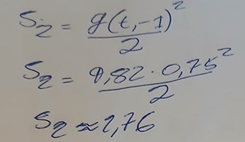 S₂ = g(t₁-1)²/2
S₂ = 9,82 · 0,75²/2
S₂ ≈ 2,76